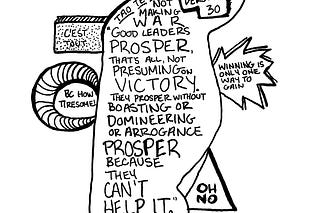 TAO TE
NOT
MAKING
WAR
"GOOD LEADERS
PROSPER,
THAT'S ALL, NOT
PRESUMING ON
VICTORY.
THEY PROSPER WITHOUT
BOASTING OR
DOMINEERING
OR ARROGANCE
PROSPER
BECAUSE
THEY
CAN'T
HELP IT."
30
C'EST
TOUT
BC HOW
TIRESOME!
WINNING IS
ONLY ONE
WAY TO
GAIN
OH
NO